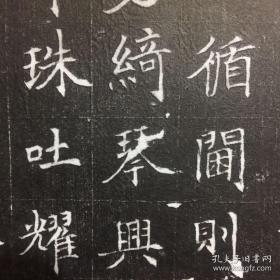 循閫則
綺琴興
珠吐耀
孔夫子旧书网